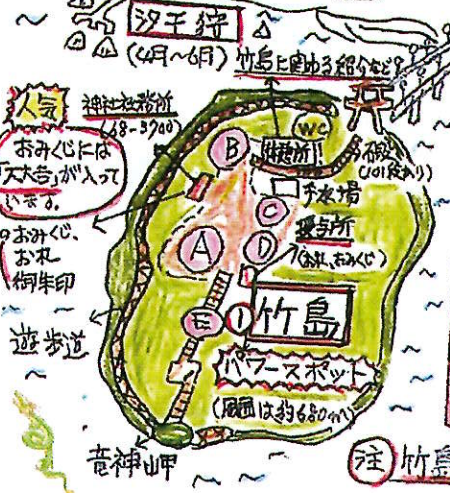 汐干狩
(4月～6月)
竹島に関する紹介など
人気
神社社務所
(68-3700)
おみくじには
「大大吉」が入って
います。
おみくじ、
お札
御朱印
WC
休憩所!!
石段
(101段あり)
手水場
授与所
(お札、おみくじ)
A
B
C
D
E
①
竹島
パワースポット
(周囲は約680m)
遊歩道
竜神岬
注 竹島